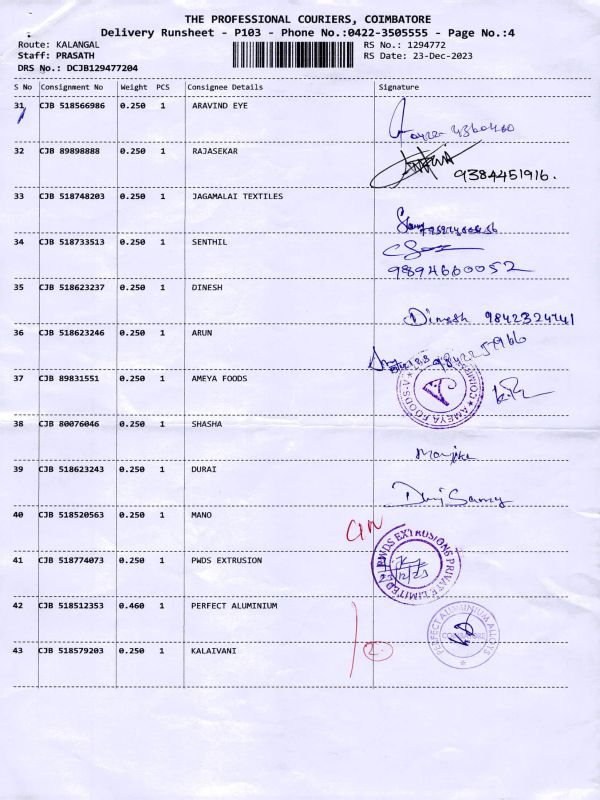 THE PROFESSIONAL COURIERS, COIMBATORE
Delivery Runsheet - P103 - Phone No.:0422-3505555 - Page No.:4
Route: KALANGAL RS No.: 1294772
Staff: PRASATH RS Date: 23-Dec-2023
DRS No.: DCJB129477204
S No Consignment No Weight PCS Consignee Details Signature
31 CJB 518566986 0.250 1 ARAVIND EYE
32 CJB 89898888 0.250 1 RAJASEKAR
9384451916.
33 CJB 518748203 0.250 1 JAGAMALAI TEXTILES
34 CJB 518733513 0.250 1 SENTHIL
9894660052
35 CJB 518623237 0.250 1 DINESH
Dinesh 9842324741
36 CJB 518623246 0.250 1 ARUN
37 CJB 89831551 0.250 1 AMEYA FOODS
AMEYA FOODS
38 CJB 80076046 0.250 1 SHASHA
39 CJB 518623243 0.250 1 DURAI
40 CJB 518520563 0.250 1 MANO
41 CJB 518774073 0.250 1 PWDS EXTRUSION
PWDS EXTRUSIONS PRIVATE LIMITED
42 CJB 518512353 0.460 1 PERFECT ALUMINIUM
PERFECT ALUMINIUM ALLOYS
43 CJB 518579203 0.250 1 KALAIVANI
2